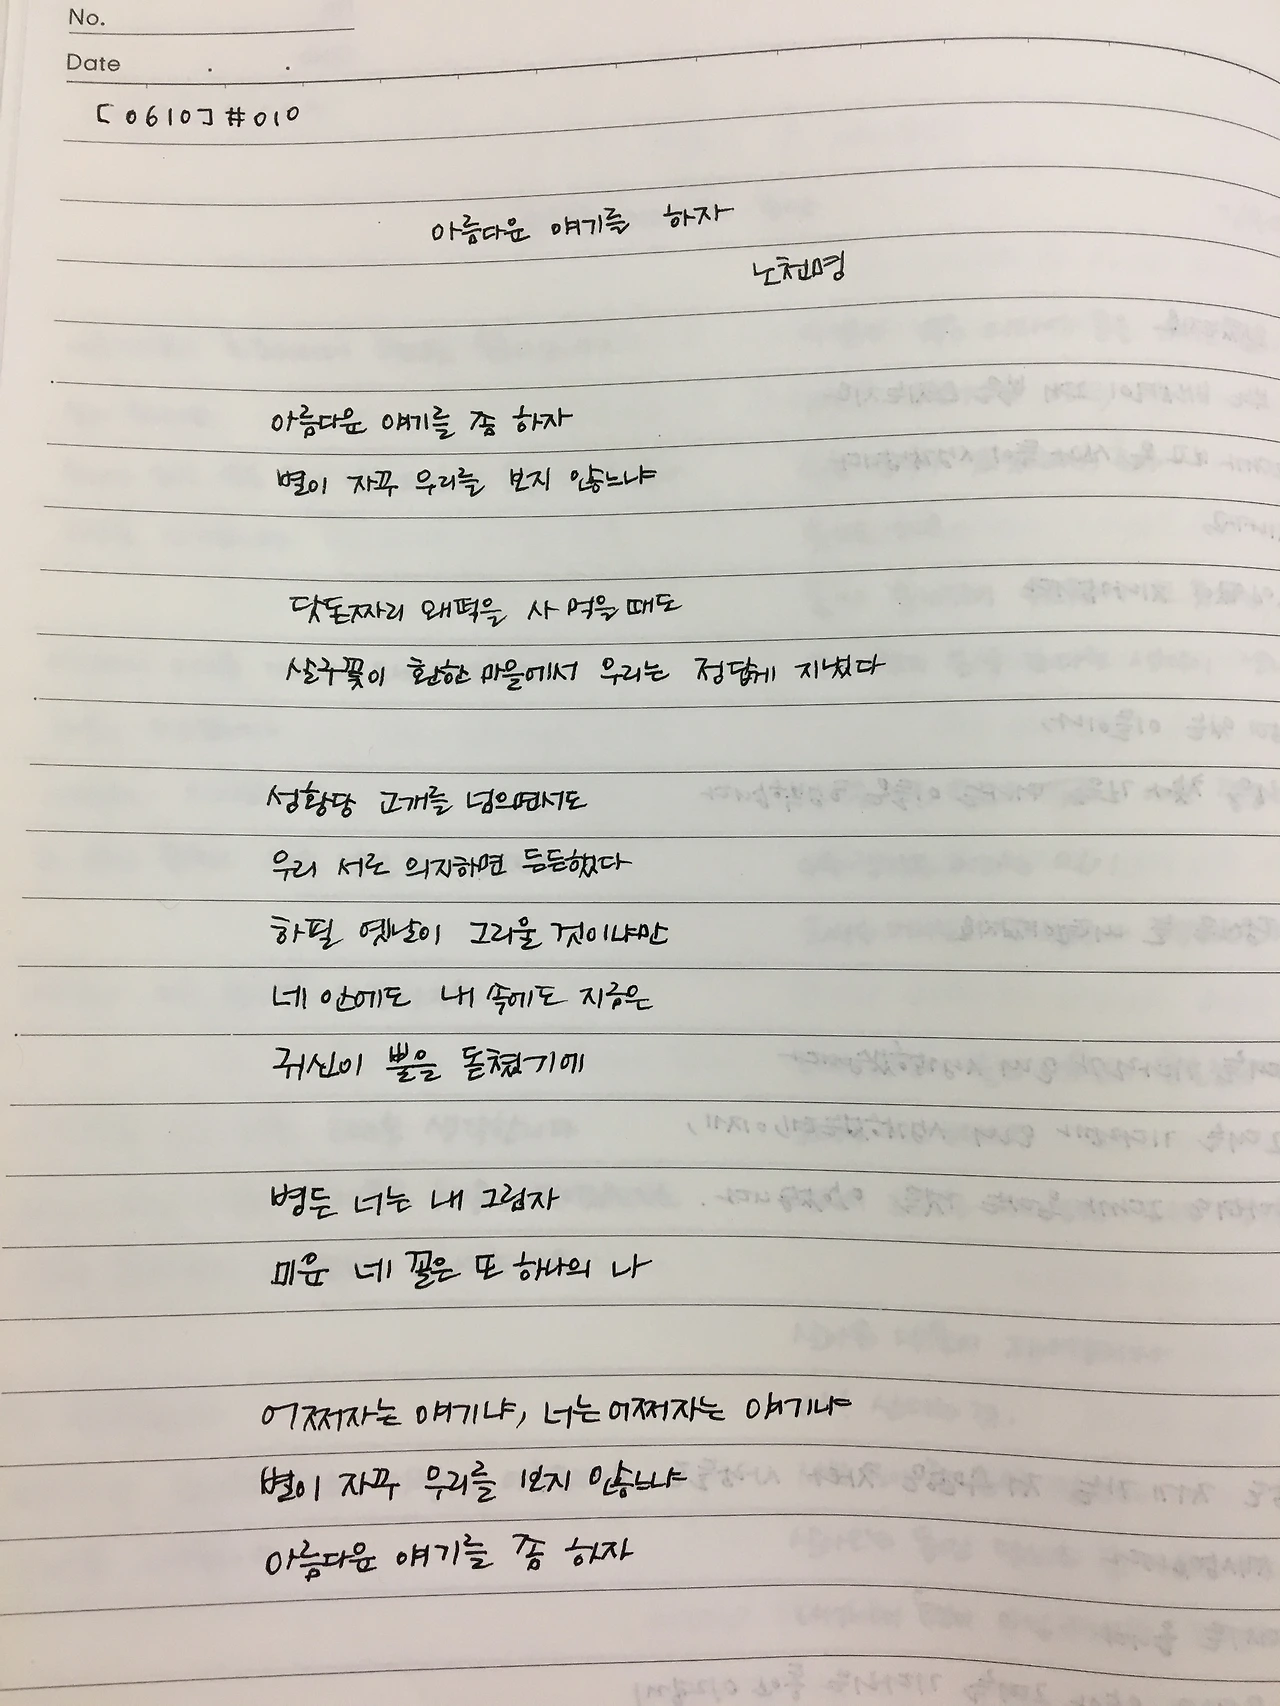 No.
Date . .
[0610] #010
아름다운 얘기를 하자
노천명
아름다운 얘기를 좀 하자
별이 자꾸 우리를 보지 않느냐
닷돈짜리 왜떡을 사 먹을 때도
살구꽃이 환한 마을에서 우리는 정답게 지냈다
성황당 고개를 넘으면서도
우리 서로 의지하면 든든했다
하필 옛날이 그리울 것이냐만
네 안에도 내 속에도 지금은
귀신이 뿔을 돋쳤기에
병든 너는 내 그림자
미운 네 꼴은 또 하나의 나
어쩌자는 얘기냐, 너는 어쩌자는 얘기냐
별이 자꾸 우리를 보지 않느냐
아름다운 얘기를 좀 하자